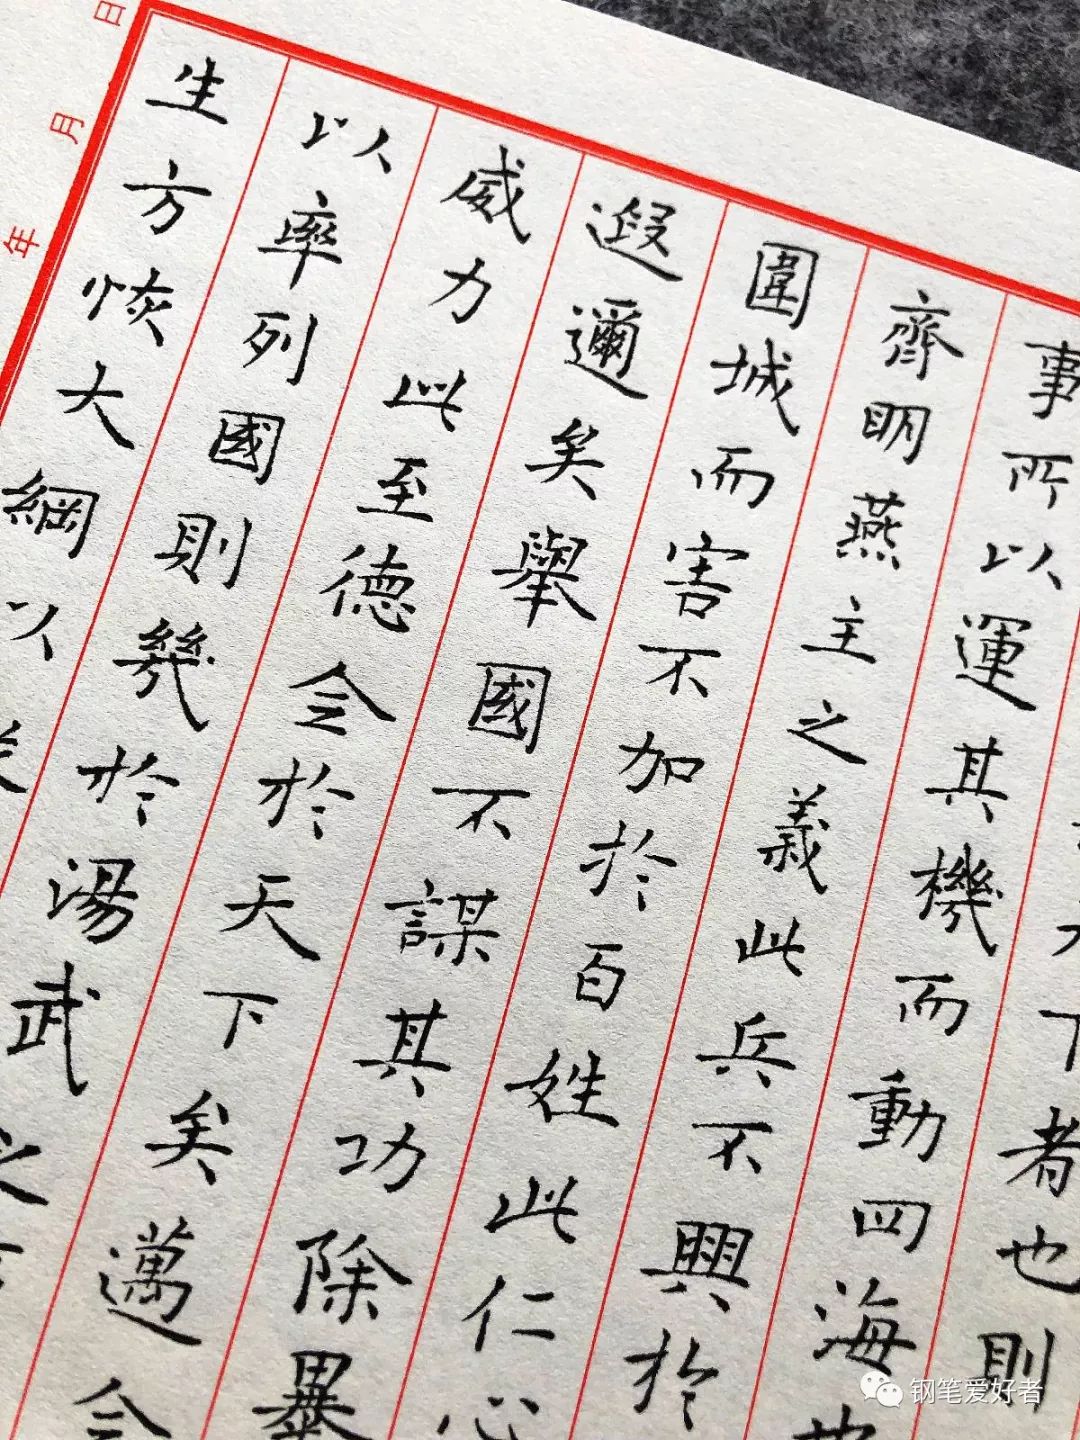 下者也則
事所以運其機而動四海也
齊明燕主之義此兵不興於
圍城而害不加於百姓此仁心
遐邇矣舉國不謀其功除暴
威力此至德令於天下矣邁令
以率列國則幾於湯武之
生方恢大綱以
年 月 日
钢笔爱好者